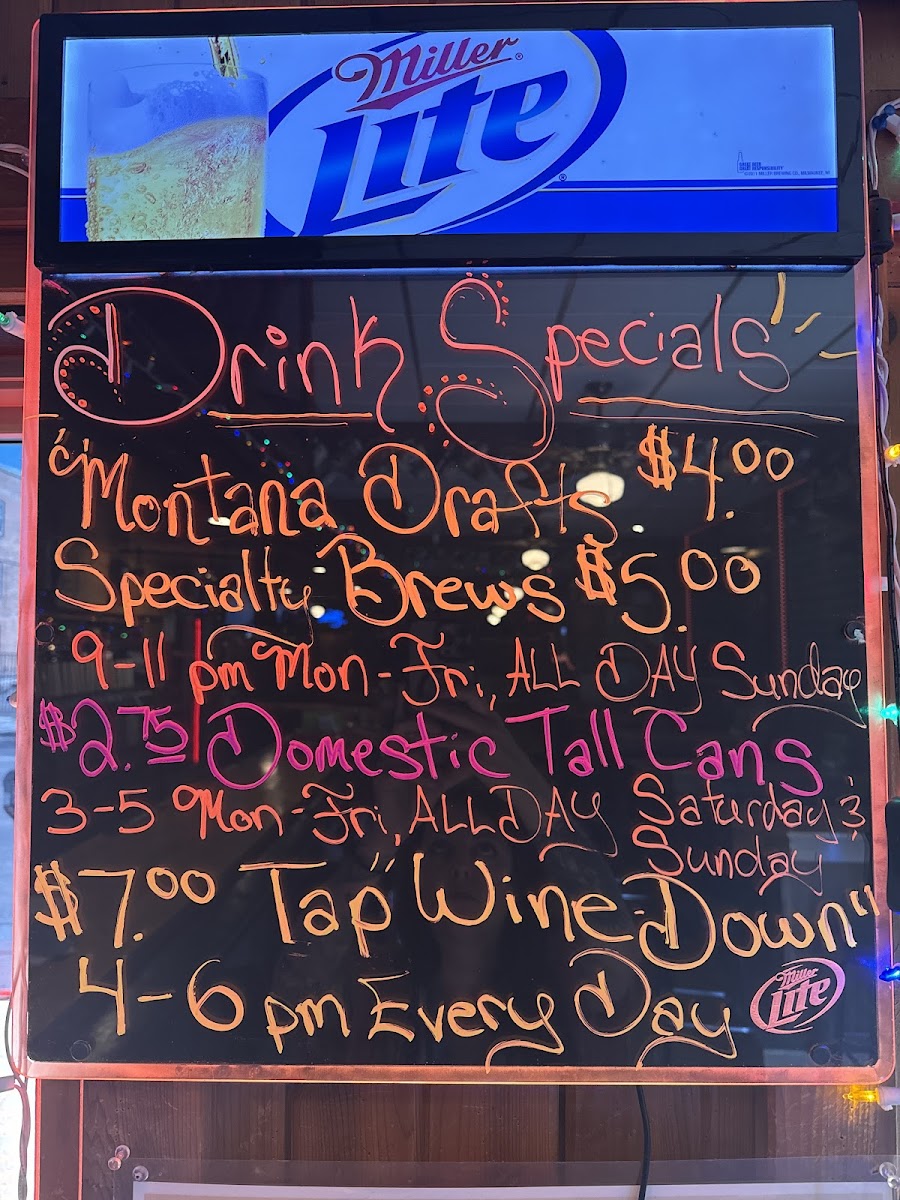 Miller
Lite
Drink Specials
"Montana Drafts $4.00
Specialty Brews $5.00
9-11 pm Mon-Fri, ALL DAY Sunday
$2.75 Domestic Tall Cans
3-5 Mon-Fri, ALL DAY Saturday &
Sunday
$7.00 Tap "Wine-Down"
4-6 pm Every Day
Miller
Lite